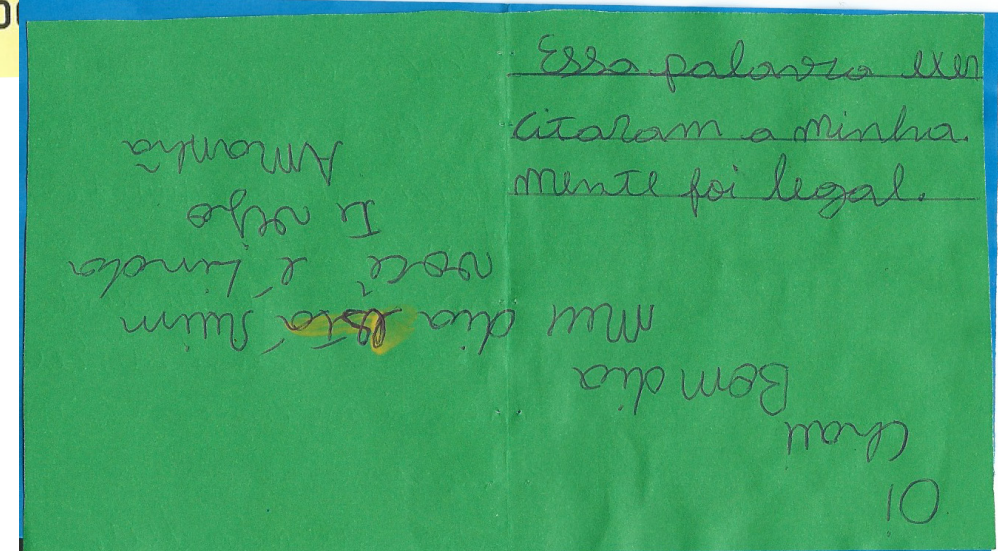 Essa palavra exer
citaram a minha.
mente foi legal.
OI
Chau
Bom dia
Meu dia está ruim
você é Linda
Te vejo
Amanhã